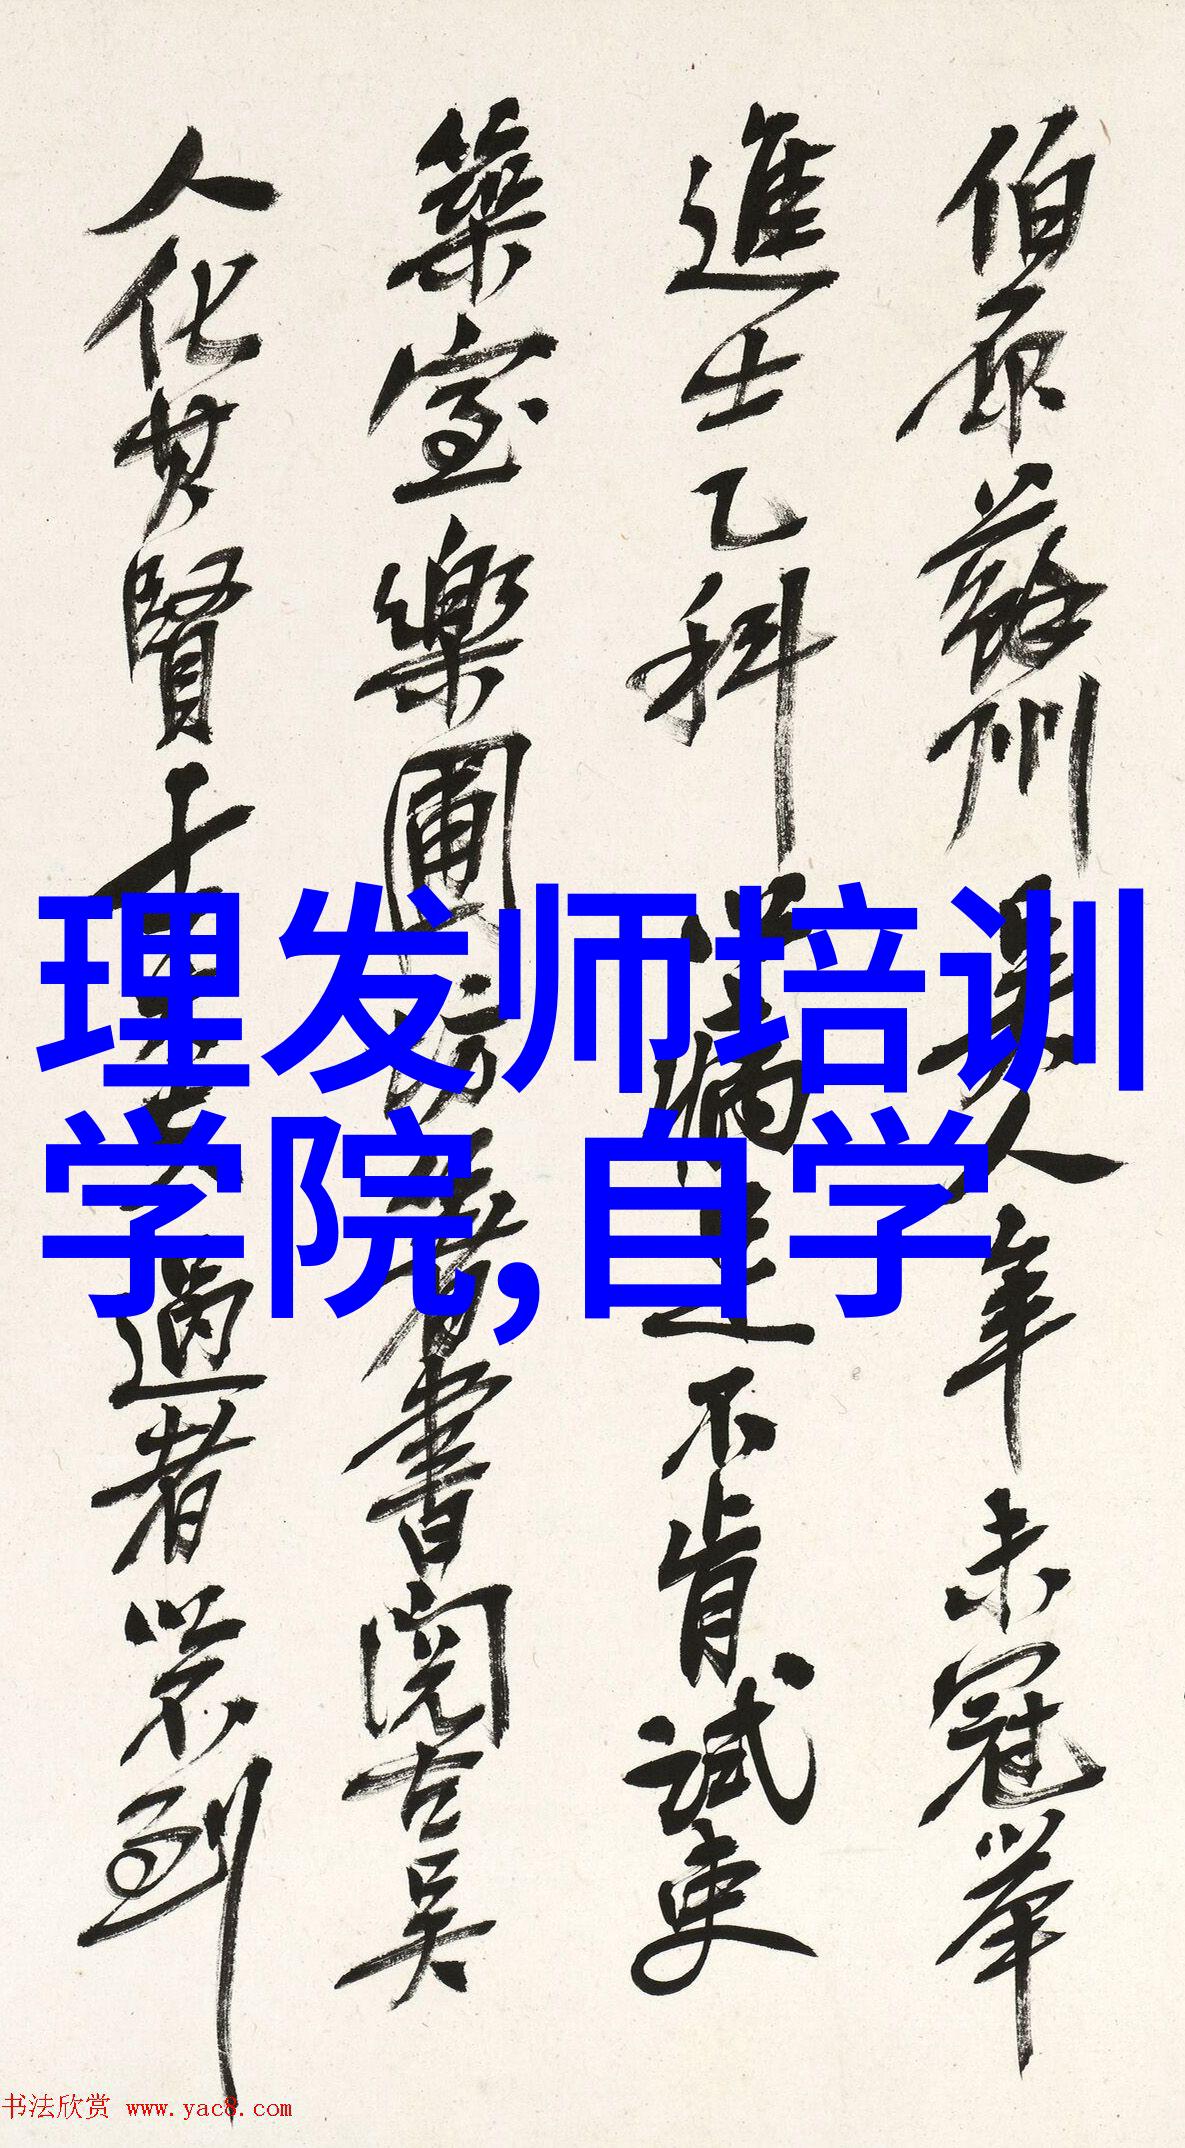 伯原蘇州吳人年未冠舉
進士乙科病足不肯試吏
築室樂圃坊著書閱古吳
人化其賢士大夫過者以不到
理发师培训
学院,自学
书法欣赏 www.yac8.com